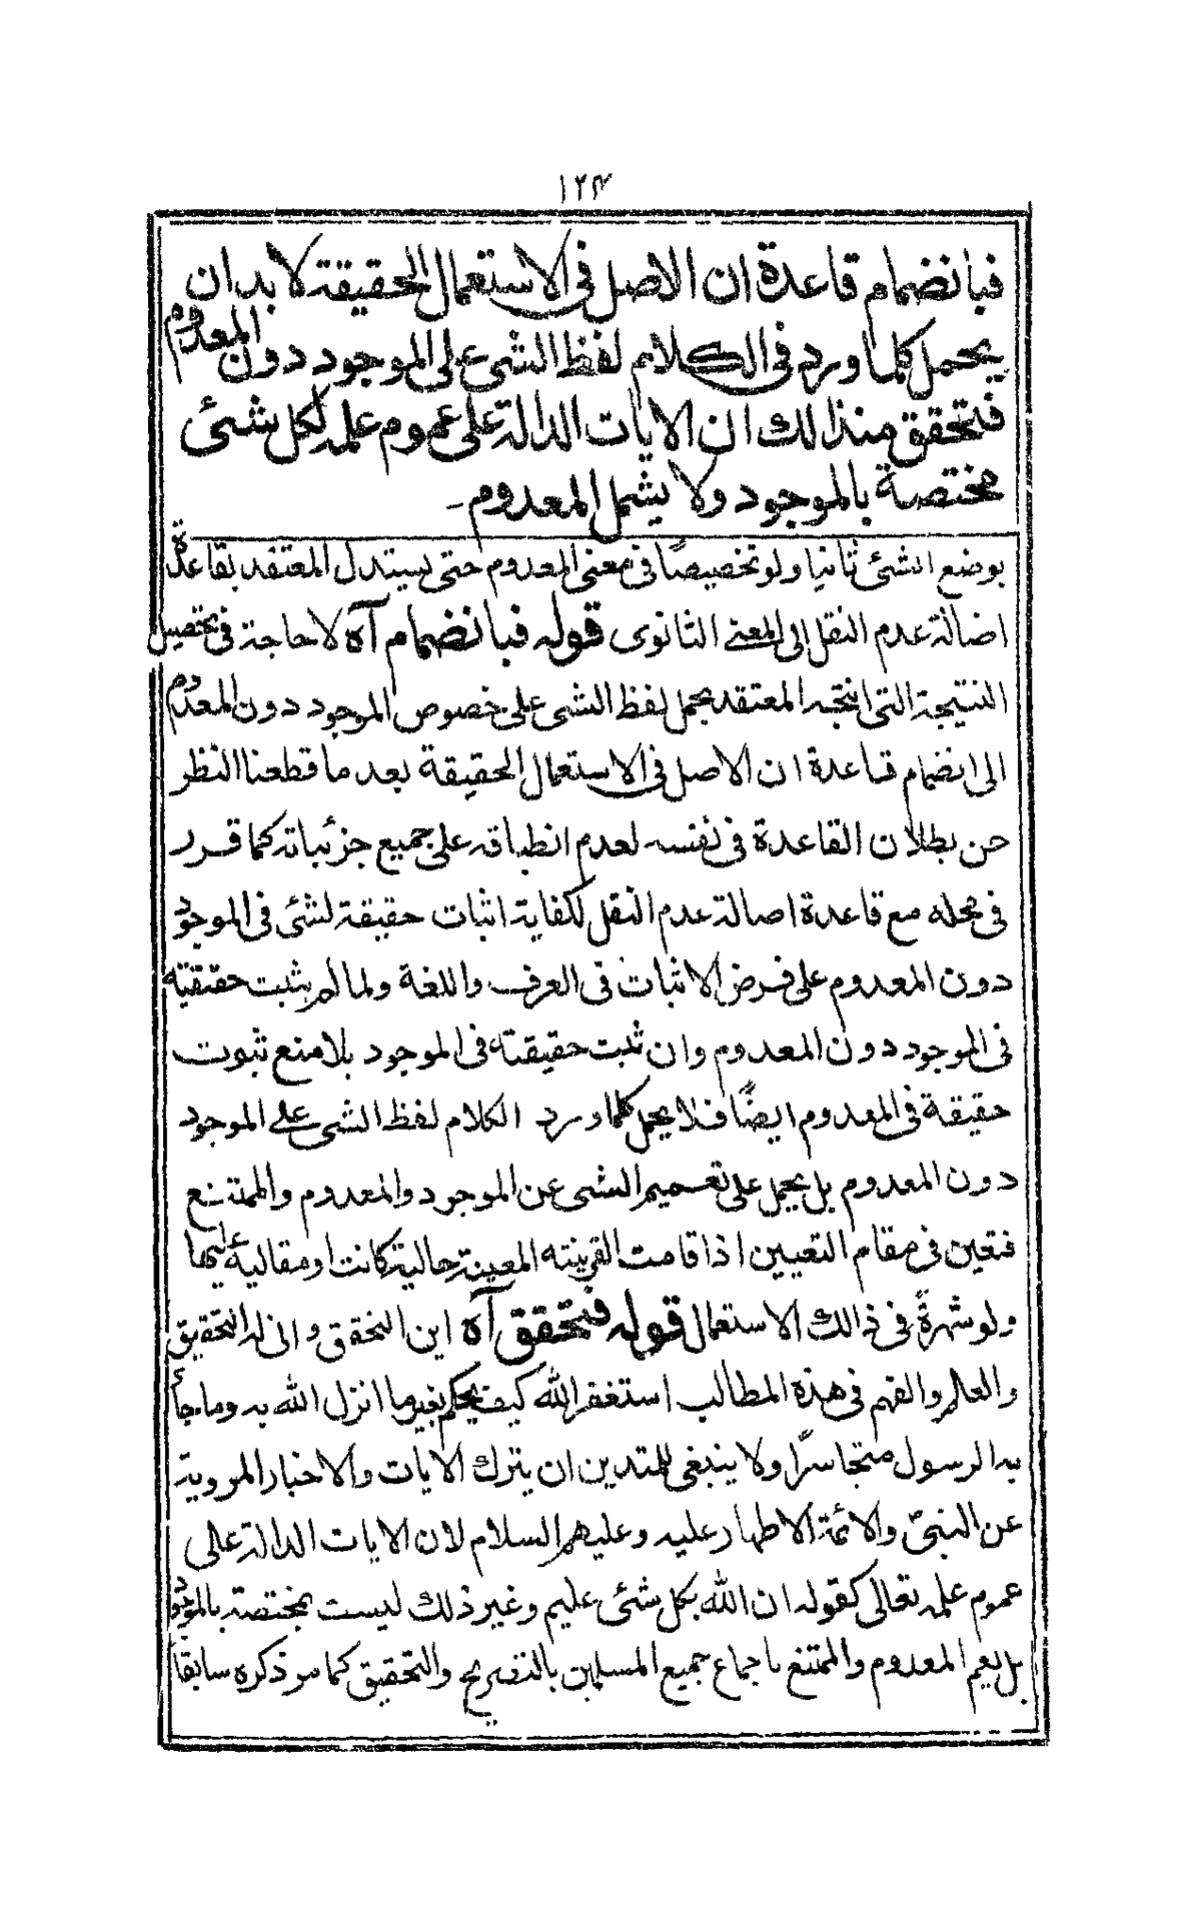 ١٢٤
فبانضمام قاعدة ان الاصل فى الاستعمال الحقيقة لا بد ان
يحمل كلما ورد فى الكلام لفظ الشى على الموجود دون المعدوم
فتحقق منذالك ان الايات الدالة على عموم علمه لكل شئى
مختصة بالموجود ولا يشمل المعدوم ـ
بوضع الشئى ثانيا ولو تخصيصًا فى معنى المعدوم حتى يستدل المعتقد بقاعدة
اضالة عدم النقل الى المعنے الثانوى قوله فبانضمام آه لا حاجة فى تحصيل
النتيجة التى انتجه المعتقد بحمل لفظ الشى على خصوص الموجود دون المعدوم
الى انضمام قاعدة ان الاصل فى الاستعمال الحقيقة بعد ما قطعنا النظر
عن بطلان القاعدة فى نفسه لعدم انطباقه على جميع جزئباته كما قرر
فى محله مع قاعدة اصالة عدم النقل لكفاية اثبات حقيقة لشئى فى الموجود
دون المعدوم على فرض الاثبات فى العرف واللغة ولما لم يثبت حقتقيته
فى الموجود دون المعدوم وان ثبت حقيقته فى الموجود بلا منع ثبوت
حقيقة فى المعدوم ايضًا فلا يحمل كلما ورد الكلام لفظ الشى علے الموجود
دون المعدوم بل يحمل على تعميم الشى عن الموجود والمعدوم والممتنع
فتعين فى مقام التعيين اذا قامت القرينته المعينة حالية كانت او مقالية ايها
ولو شهرةً فى ذالك الاستعمال قوله فتحقق آه اين التحقق وانى له التحقيق
والعلم والفهم فى هذه المطالب استغفر الله كيف يحكم بغير ما انزل الله به وما جأ
به الرسول متجاسرًا ولا ينبغى للمتدين ان يترك الايات والاخبار المروية
عن النبىّ والائمة الاطهار عليه وعليهم السلام لان الايات الدالة على
عموم علمه تعالى كقوله ان الله بكل شئى عليم وغير ذلك ليست بمختصة بالموجود
بل يعم المعدوم والممتنع باجماع جميع المسلمين بالتصريح والتحقيق كما مر ذكره سابقا